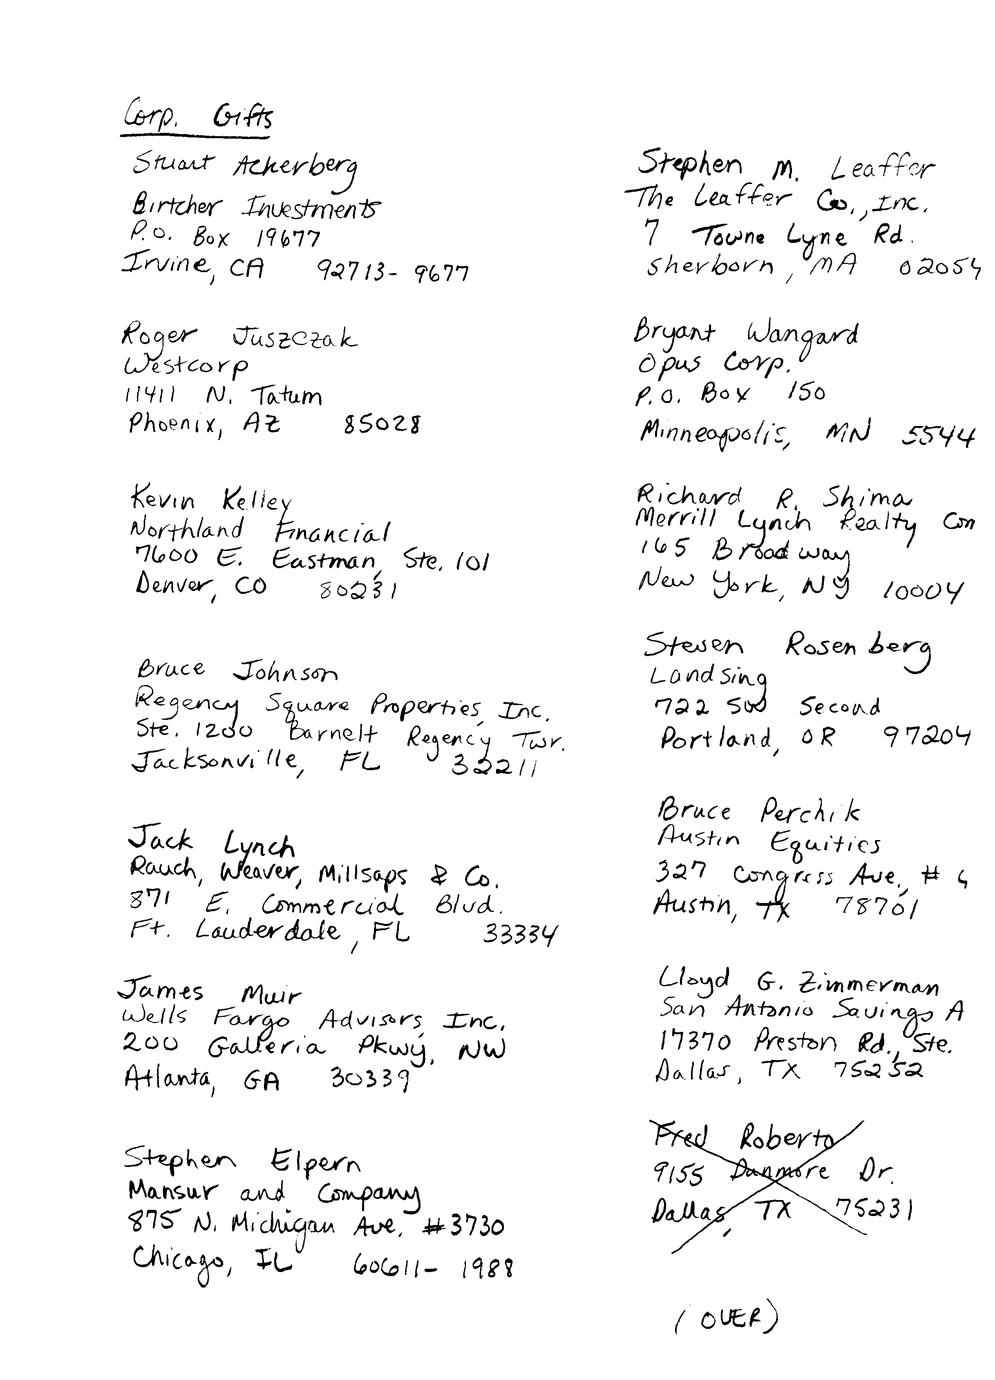 Corp. Gifts
Stuart Ackerberg
Birtcher Investments
P.O. Box 19677
Irvine, CA 92713-9677
Roger Juszczak
Westcorp
11411 N. Tatum
Phoenix, AZ 85028
Kevin Kelley
Northland Financial
7600 E. Eastman, Ste. 101
Denver, CO 80231
Bruce Johnson
Regency Square Properties, Inc.
Ste. 1200 Barnett Regency Twr.
Jacksonville, FL 32211
Jack Lynch
Rauch, Weaver, Millsaps & Co.
871 E. Commercial Blvd.
Ft. Lauderdale, FL 33334
James Muir
Wells Fargo Advisors, Inc.
200 Galleria Pkwy, NW
Atlanta, GA 30339
Stephen Elpern
Mansur and Company
875 N. Michigan Ave. #3730
Chicago, IL 60611-1988
Stephen M. Leaffer
The Leaffer Co., Inc.
7 Towne Lyne Rd.
Sherborn, MA 02054
Bryant Wangard
Opus Corp.
P.O. Box 150
Minneapolis, MN 5544
Richard R. Shima
Merrill Lynch Realty Com
165 Broadway
New York, NY 10004
Steven Rosenberg
Landsing
722 SW Second
Portland, OR 97204
Bruce Perchik
Austin Equities
327 Congress Ave., #
Austin, TX 78701
Lloyd G. Zimmerman
San Antonio Savings A
17370 Preston Rd., Ste.
Dallas, TX 75252
Fred Roberto
9155 Dunmore Dr.
Dallas, TX 75231
(OVER)